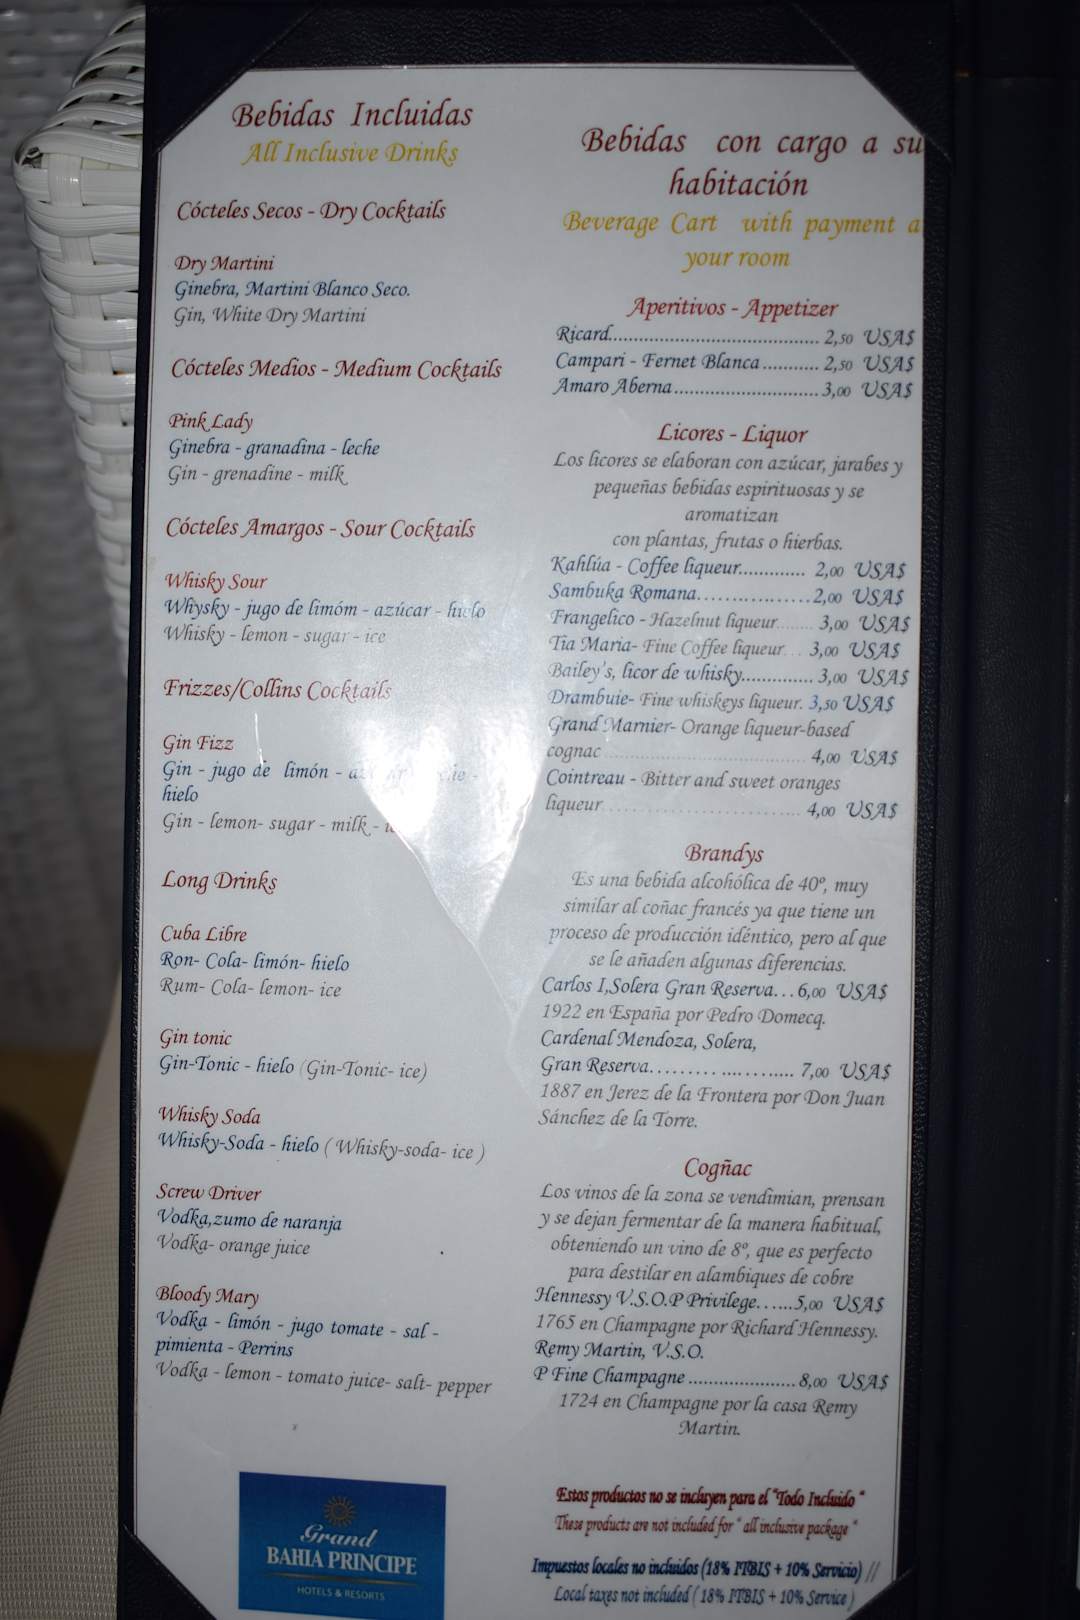 Bebidas Incluidas
All Inclusive Drinks
Cócteles Secos - Dry Cocktails
Dry Martini
Ginebra, Martini Blanco Seco.
Gin, White Dry Martini
Cócteles Medios - Medium Cocktails
Pink Lady
Ginebra - granadina - leche
Gin - grenadine - milk
Cócteles Amargos - Sour Cocktails
Whisky Sour
Whysky - jugo de limóm - azúcar - hielo
Whisky - lemon - sugar - ice
Frizzes/Collins Cocktails
Gin Fizz
Gin - jugo de limón -
hielo
Gin - lemon- sugar - milk -
Long Drinks
Cuba Libre
Ron- Cola- limón- hielo
Rum- Cola- lemon- ice
Gin tonic
Gin-Tonic - hielo (Gin-Tonic- ice)
Whisky Soda
Whisky-Soda - hielo ( Whisky-soda- ice )
Screw Driver
Vodka,zumo de naranja
Vodka- orange juice
Bloody Mary
Vodka - limón - jugo tomate - sal -
pimienta - Perrins
Vodka - lemon - tomato juice- salt- pepper
Grand
BAHIA PRINCIPE
HOTELS & RESORTS
Bebidas con cargo a su
habitación
Beverage Cart with payment a
your room
Aperitivos - Appetizer
Ricard.......................................... 2,50 USA$
Campari - Fernet Blanca........... 2,50 USA$
Amaro Aberna............................. 3,00 USA$
Licores - Liquor
Los licores se elaboran con azúcar, jarabes y
pequeñas bebidas espirituosas y se
aromatizan
con plantas, frutas o hierbas.
Kahlúa - Coffee liqueur............. 2,00 USA$
Sambuka Romana.................2,00 USA$
Frangelico - Hazelnut liqueur....... 3,00 USA$
Tia Maria- Fine Coffee liqueur... 3,00 USA$
Bailey's, licor de whisky.............. 3,00 USA$
Drambuie- Fine whiskeys liqueur. 3,50 USA$
Grand Marnier- Orange liqueur-based
cognac ........................................ 4,00 USA$
Cointreau - Bitter and sweet oranges
liqueur............................ 4,00 USA$
Brandys
Es una bebida alcohólica de 40º, muy
similar al coñac francés ya que tiene un
proceso de producción idéntico, pero al que
se le añaden algunas diferencias.
Carlos I,Solera Gran Reserva...6,00 USA$
1922 en España por Pedro Domecq.
Cardenal Mendoza, Solera,
Gran Reserva......... .............. 7,00 USA$
1887 en Jerez de la Frontera por Don Juan
Sánchez de la Torre.
Cogñac
Los vinos de la zona se vendimian, prensan
y se dejan fermentar de la manera habitual,
obteniendo un vino de 8º, que es perfecto
para destilar en alambiques de cobre
Hennessy V.S.O.P Privilege......5,00 USA$
1765 en Champagne por Richard Hennessy.
Remy Martin, V.S.O.
P Fine Champagne ...................... 8,00 USA$
1724 en Champagne por la casa Remy
Martin.
Estos productos no se incluyen para el "Todo Incluido "
These products are not included for " all inclusive package "
Impuestos locales no incluidos (18% ITBIS + 10% Servicio) //
Local taxes not included ( 18% ITBIS + 10% Service )